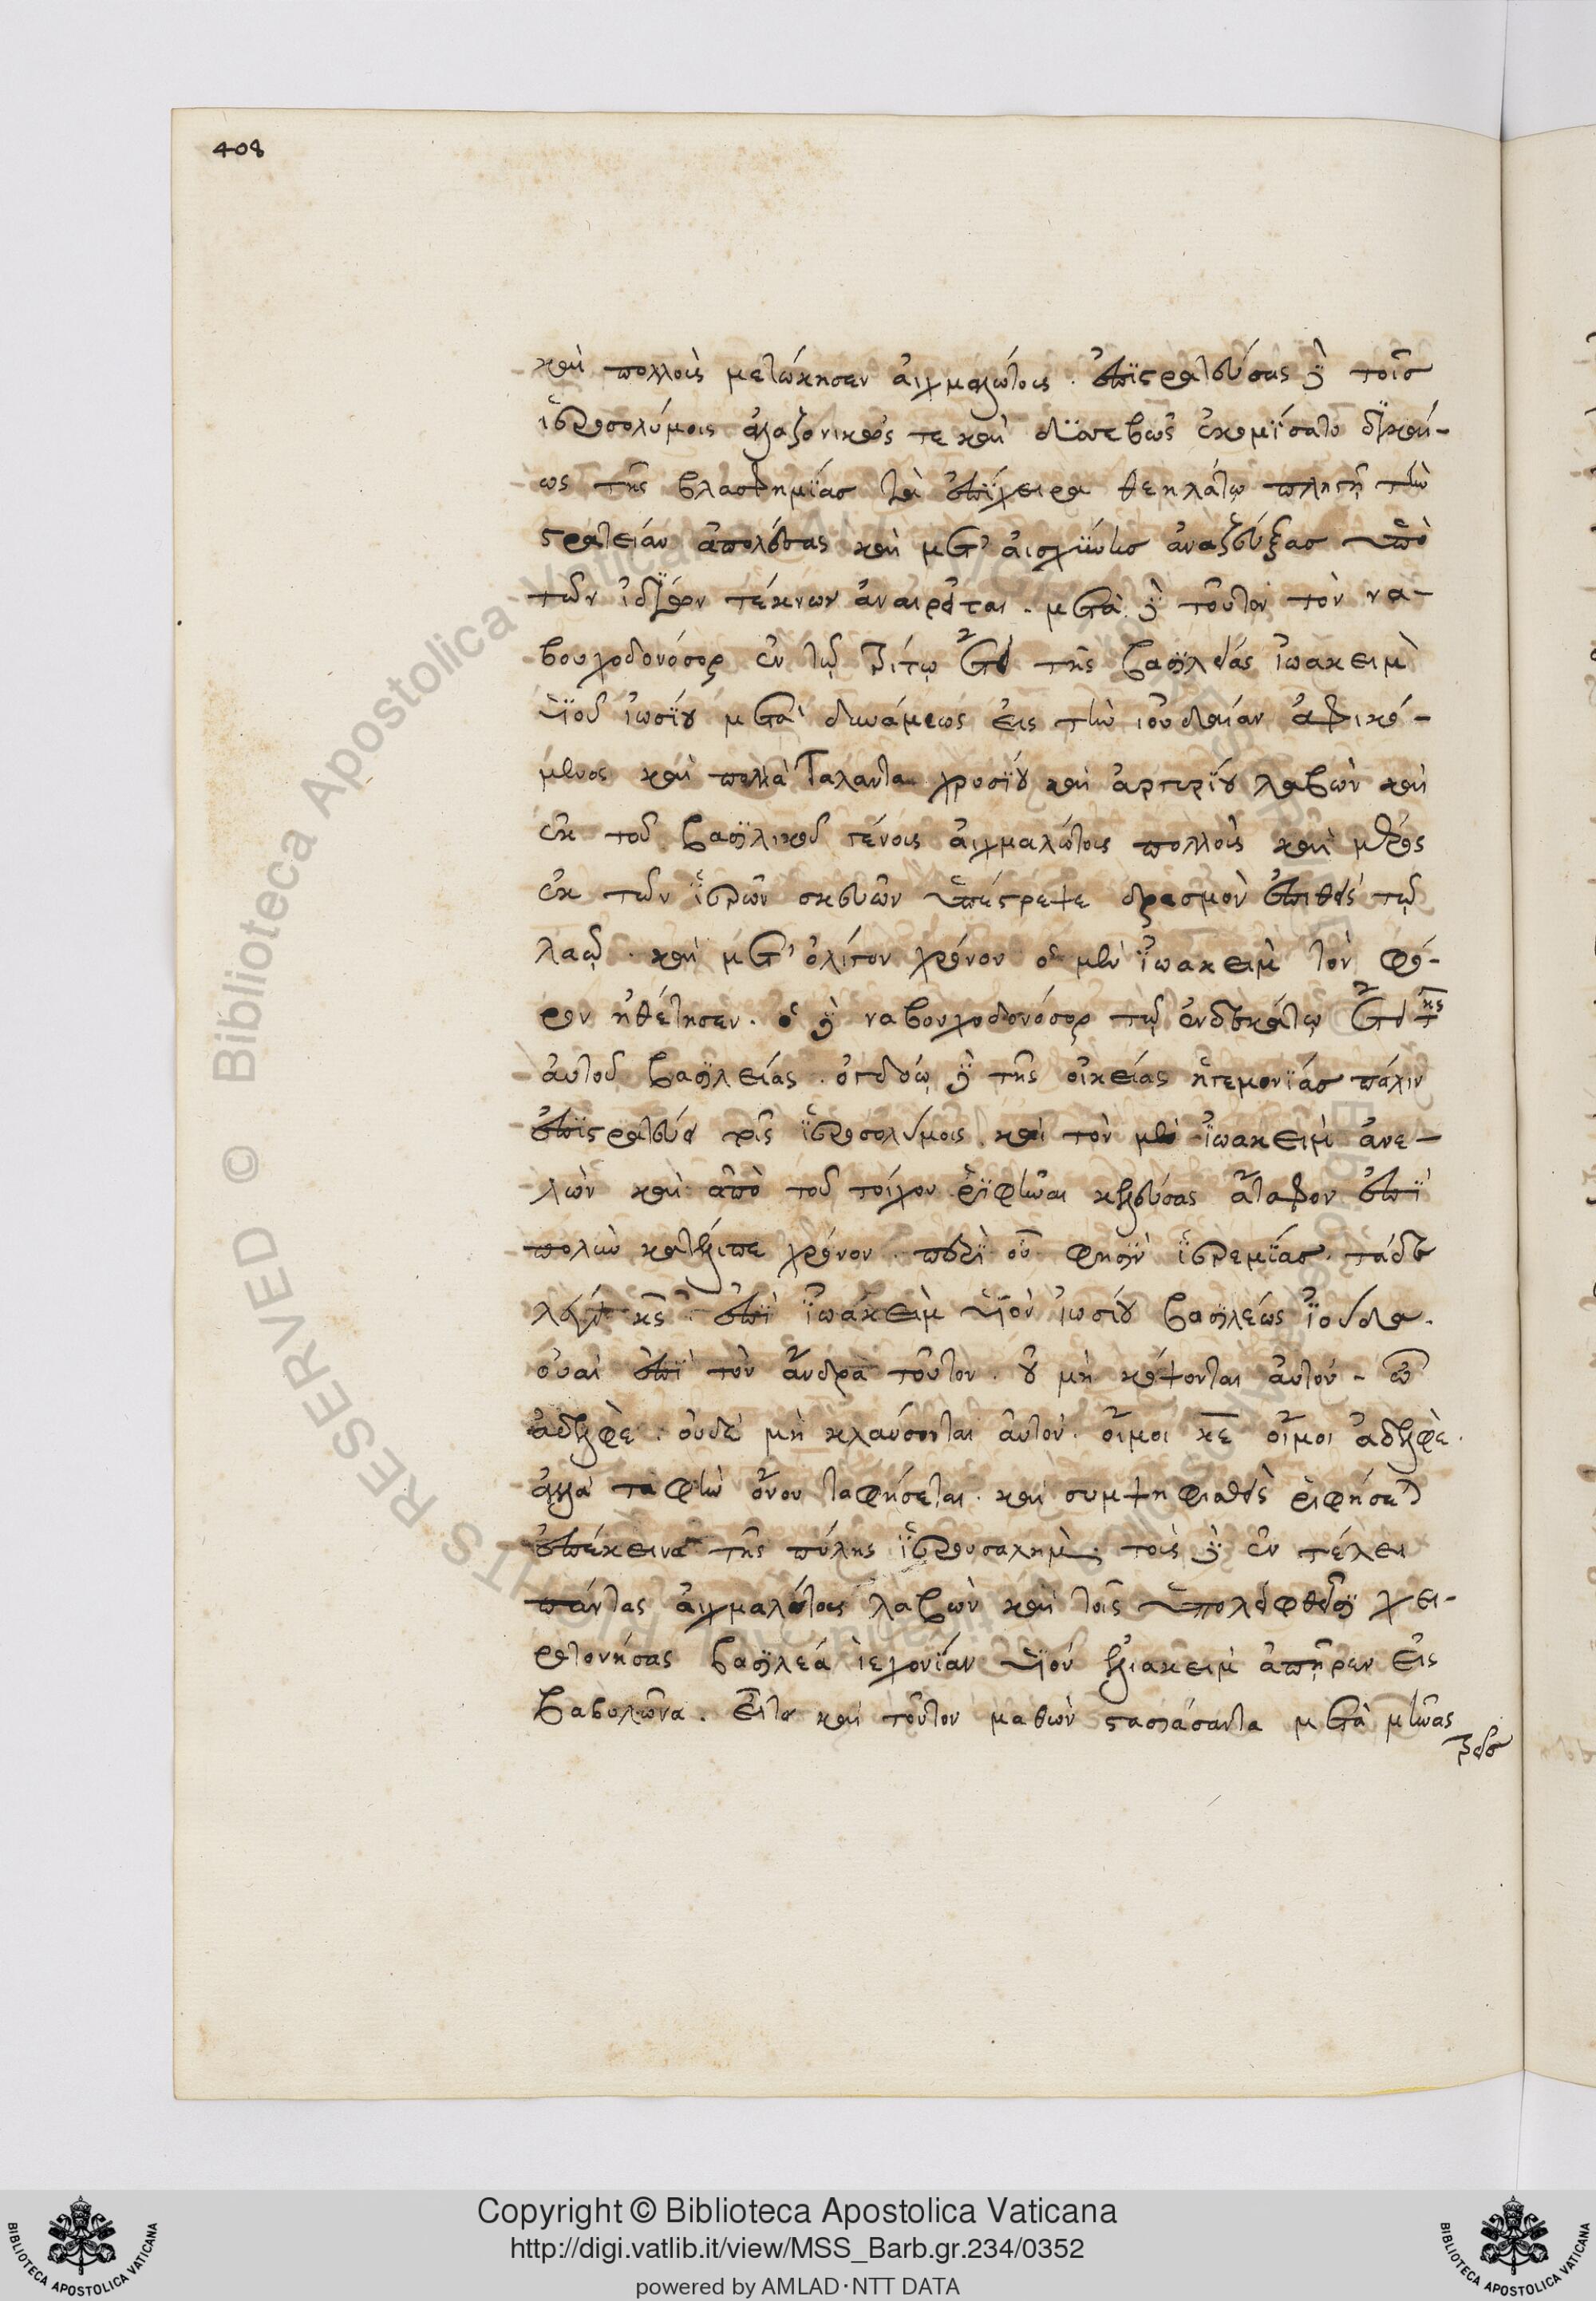 408
καὶ πολλοὺς μετώκησεν αἰχμαλώτους. ἐπιστρατεύσας δὲ τοῖς
ἱεροσολύμοις ἀλαζονικῶς τε καὶ δυσσεβῶς ἐκομίσατο δικαί-
ως τῆς βλασφημίας τὰ ἐπίχειρα θεηλάτῳ πληγῇ τὴν
στρατείαν ἀπολέσας καὶ μετ' αἰσχύνης ἀναζεύξας ὑπὸ
τῶν ἰδίων τέκνων ἀναιρεῖται. μετὰ δὲ τοῦτον τὸν να-
βουχοδονόσορ ἐν τῷ τρίτῳ ἔτει τῆς βασιλείας ἰωακεὶμ
υἱοῦ ἰωσίου μετὰ δυνάμεως εἰς τὴν ἰουδαίαν ἀφικό-
μενος καὶ πολλὰ τάλαντα χρυσίου καὶ ἀργυρίου λαβὼν καὶ
ἐκ τοῦ βασιλικοῦ γένους αἰχμαλώτους πολλοὺς καὶ μέρος
ἐκ τῶν ἱερῶν σκευῶν ὑπέστρεψε δασμὸν ἐπιθεὶς τῷ
λαῷ. καὶ μετ' ὀλίγον χρόνον ὁ μὲν ἰωακεὶμ τὸν φό-
ρον ἠθέτησεν. ὁ δὲ ναβουχοδονόσορ τῷ ἑνδεκάτῳ ἔτει τῆς
αὐτοῦ βασιλείας. ὀγδόῳ δὲ τῆς οἰκείας ἡγεμονίας πάλιν
ἐπιστρατεύει τοῖς ἱεροσολύμοις. καὶ τὸν μὲν ἰωακεὶμ ἀνε-
λὼν καὶ ἀπὸ τοῦ τοίχου ῥιφῆναι κελεύσας ἄταφον ἐπὶ
πολὺν κατέλιπε χρόνον. περὶ οὗ φησὶν ἱερεμίας. τάδε
λέγει κς. ἐπὶ ἰωακεὶμ υἱὸν ἰωσίου βασιλέως ἰούδα.
οὐαὶ ἐπὶ τὸν ἄνδρα τοῦτον. οὐ μὴ κόψονται αὐτόν. ὦ
ἀδελφὲ. οὐδὲ μὴ κλαύσονται αὐτόν. οἴμοι κε οἴμοι ἀδελφὲ.
ἀλλὰ ταφὴν ὄνου ταφήσεται. καὶ συμψηφισθεὶς ῥιφήσεται
ἐπέκεινα τῆς πύλης ἱερουσαλήμ. τοὺς δὲ ἐν τέλει
πάντας αἰχμαλώτους λαβὼν καὶ τοῖς ὑπολειφθεῖσι χει-
ροτονήσας βασιλέα ἰεχονίαν υἱὸν ἐλιακεὶμ ἀπῇρεν εἰς
βαβυλῶνα. εἶτα καὶ τοῦτον μαθὼν στασιάσαντα μετὰ μῆνας
τρεῖς
Copyright © Biblioteca Apostolica Vaticana
http://digi.vatlib.it/view/MSS_Barb.gr.234/0352
powered by AMLAD·NTT DATA